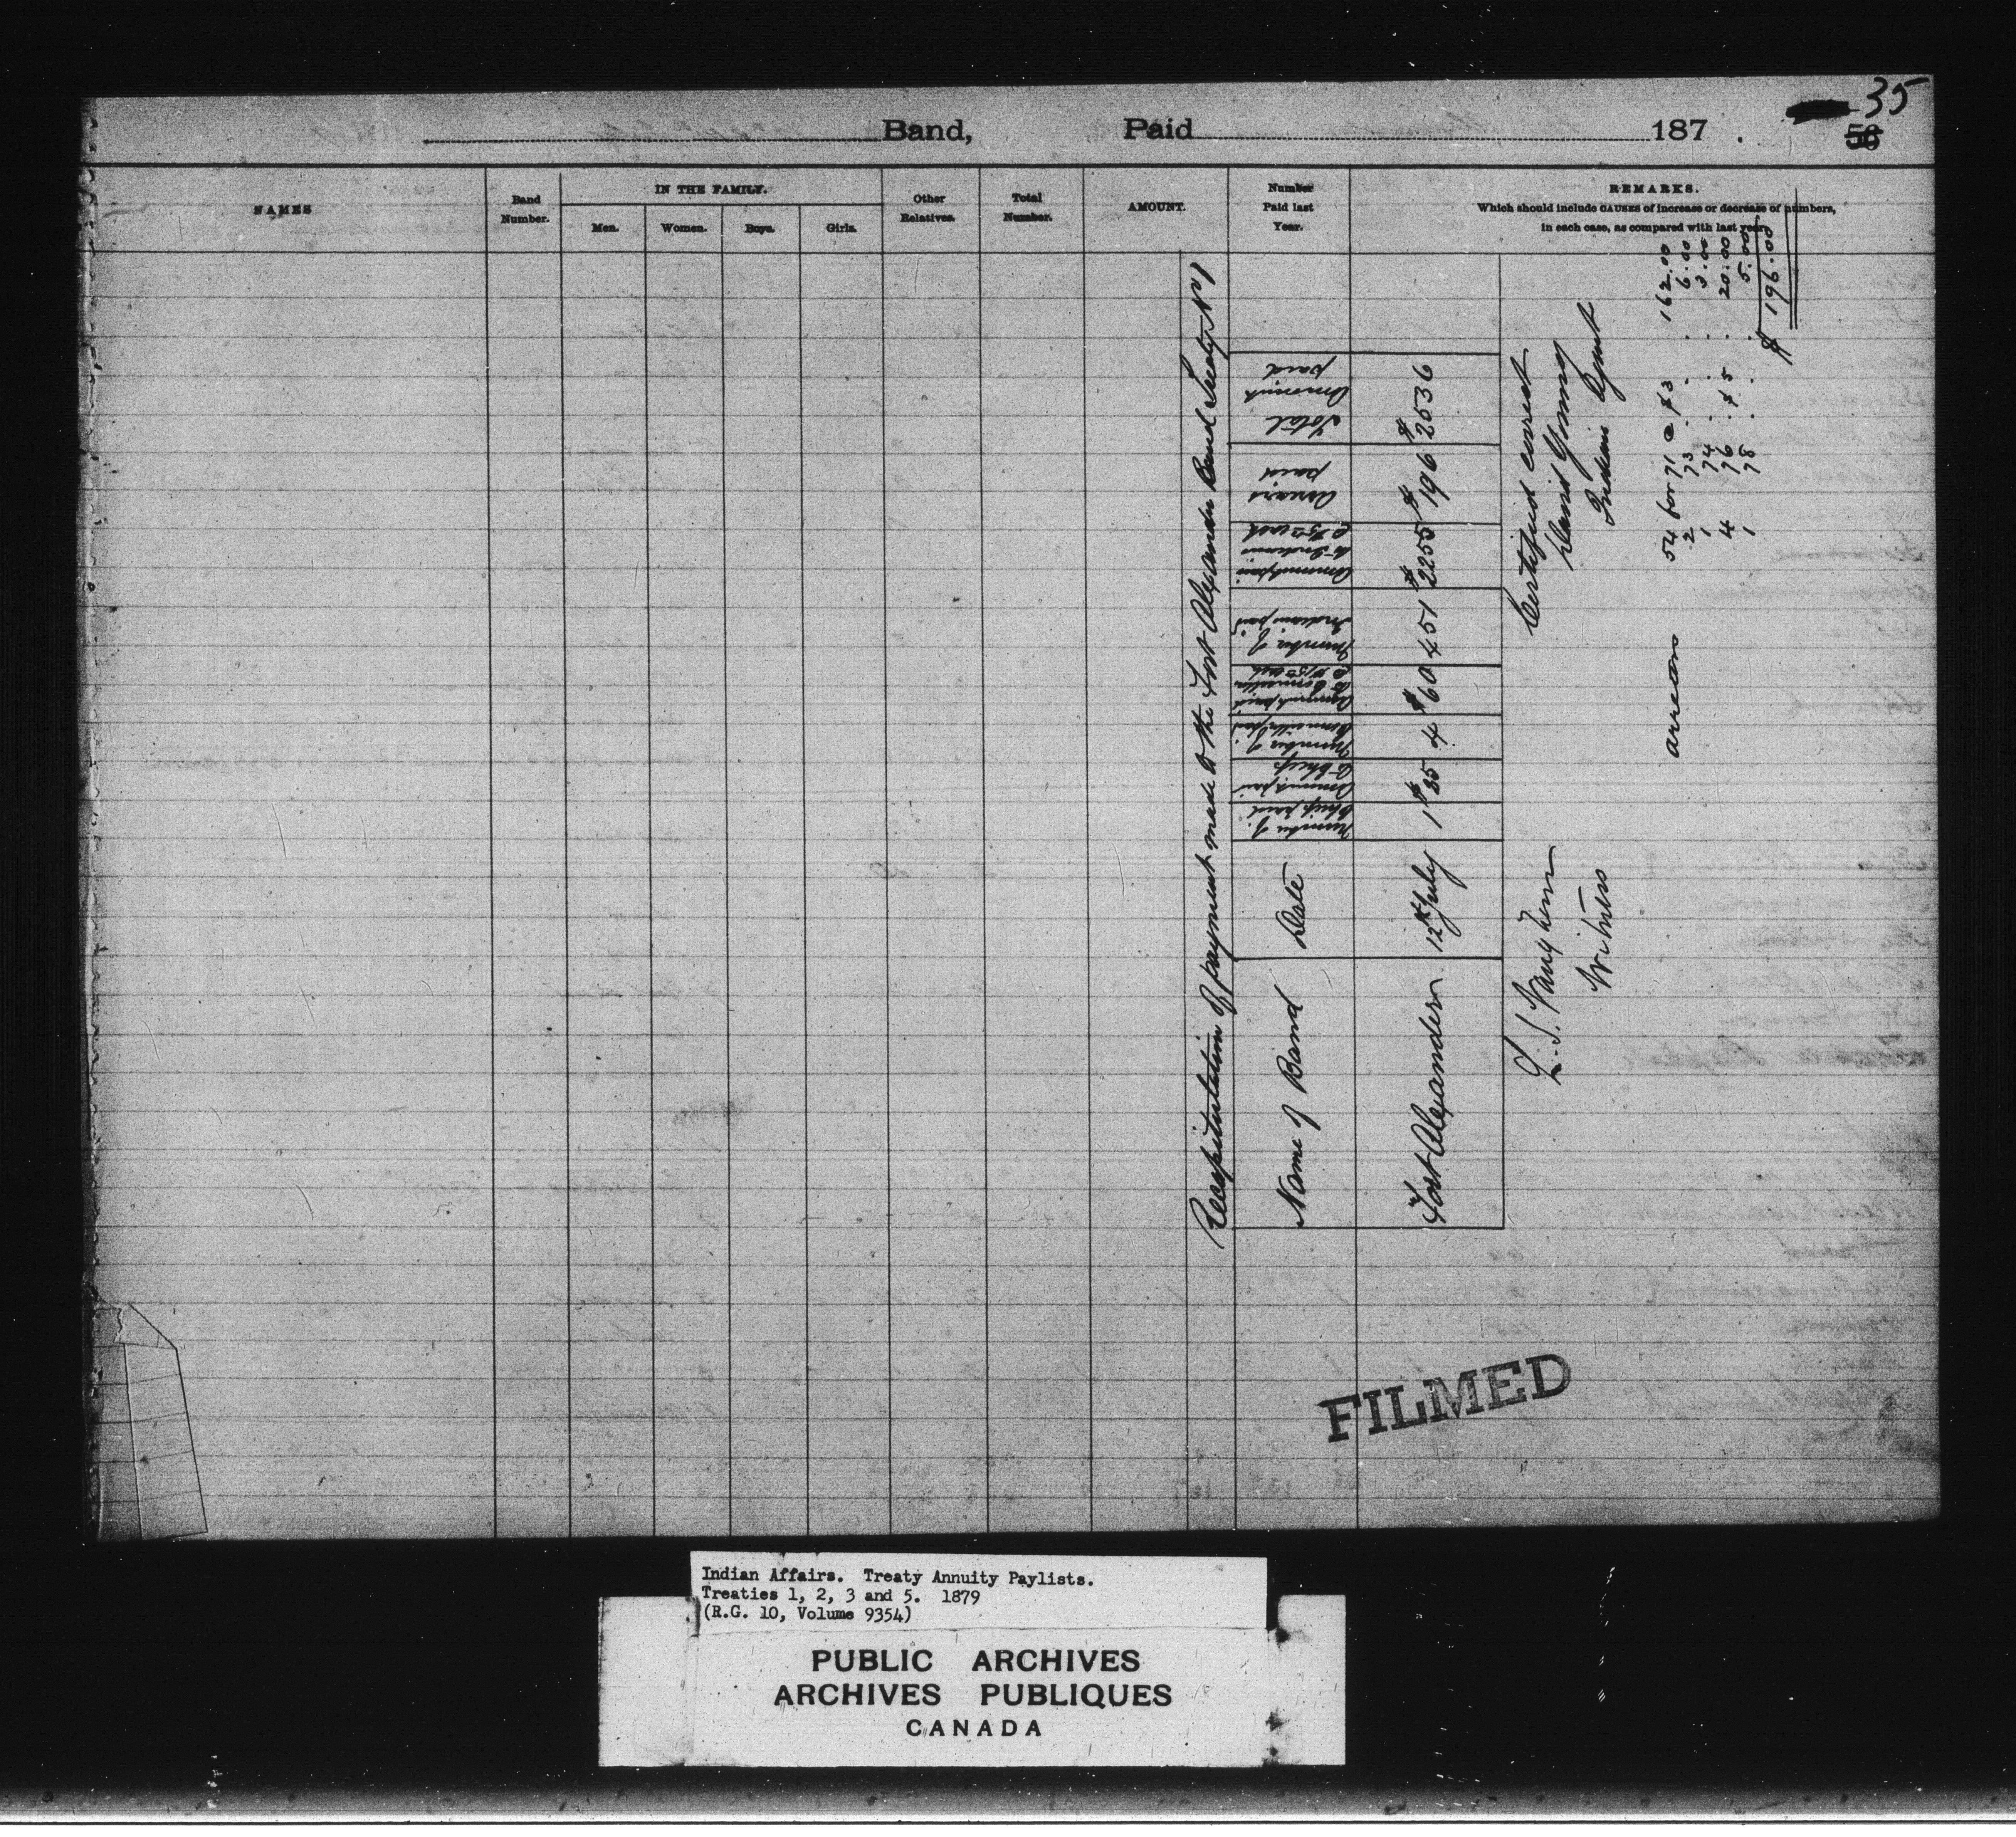 35
56
Band, Paid 187 .
NAMES
Band Number.
IN THE FAMILY.
Men. Women. Boys. Girls.
Other Relatives.
Total Number.
AMOUNT.
Number Paid last Year.
REMARKS.
Which should include CAUSES of increase or decrease of numbers,
in each case, as compared with last year.
Recapitulation of payment made to the Fort Alexander Band Treaty No 1
Name of Band
Date
Number of Chiefs paid
Amount paid to Chiefs
Number of Councillors paid
Amount paid to Councillors @ $15 each
Number of Indians paid
Amount paid to Indians @ $5 each
Arrears paid
Total Amount paid
Fort Alexander 12th July 1 $25 4 $60 451 $2255 $196 $2536
Certified correct
David Young
Indian Agent
Witness
arrears 54 for 71 @ $3 . 162.00
2 73 . . 6.00
1 74 . . 3.00
4 76 . $5 . 20.00
1 78 . . 5.00
$ 196.00
FILMED
Indian Affairs. Treaty Annuity Paylists.
Treaties 1, 2, 3 and 5. 1879
(R.G. 10, Volume 9354)
PUBLIC ARCHIVES
ARCHIVES PUBLIQUES
CANADA